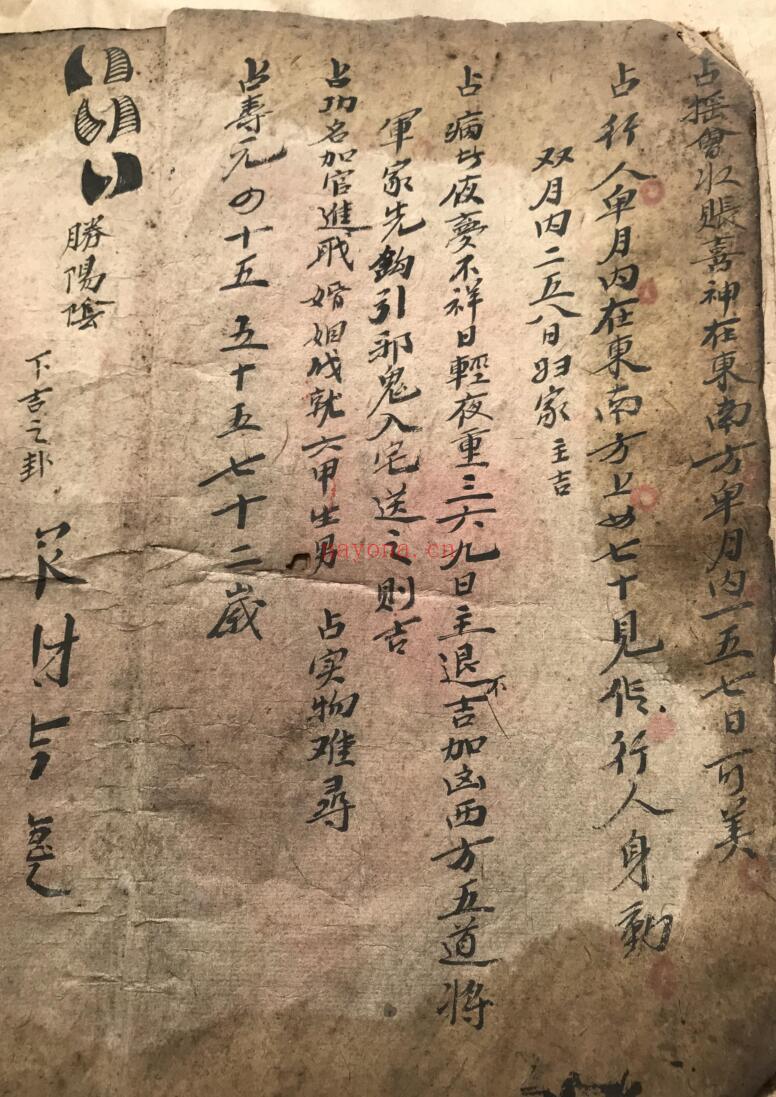 占搖會收賬喜神在東南方单月内一五七日可美
占行人单月内在東南方上廿七十見信行人身動
双月内二五八日归家主吉
占病此夜夢不祥日輕夜重三六九日主退不吉加凶西方五道將
軍家先鈎引邪鬼入宅送之則吉
占功名加官進职婚姻成就六甲生男 占实物难尋
占壽元四十五 五十五七十二歲
勝陽陰
下吉之卦
求財
nayona.cn